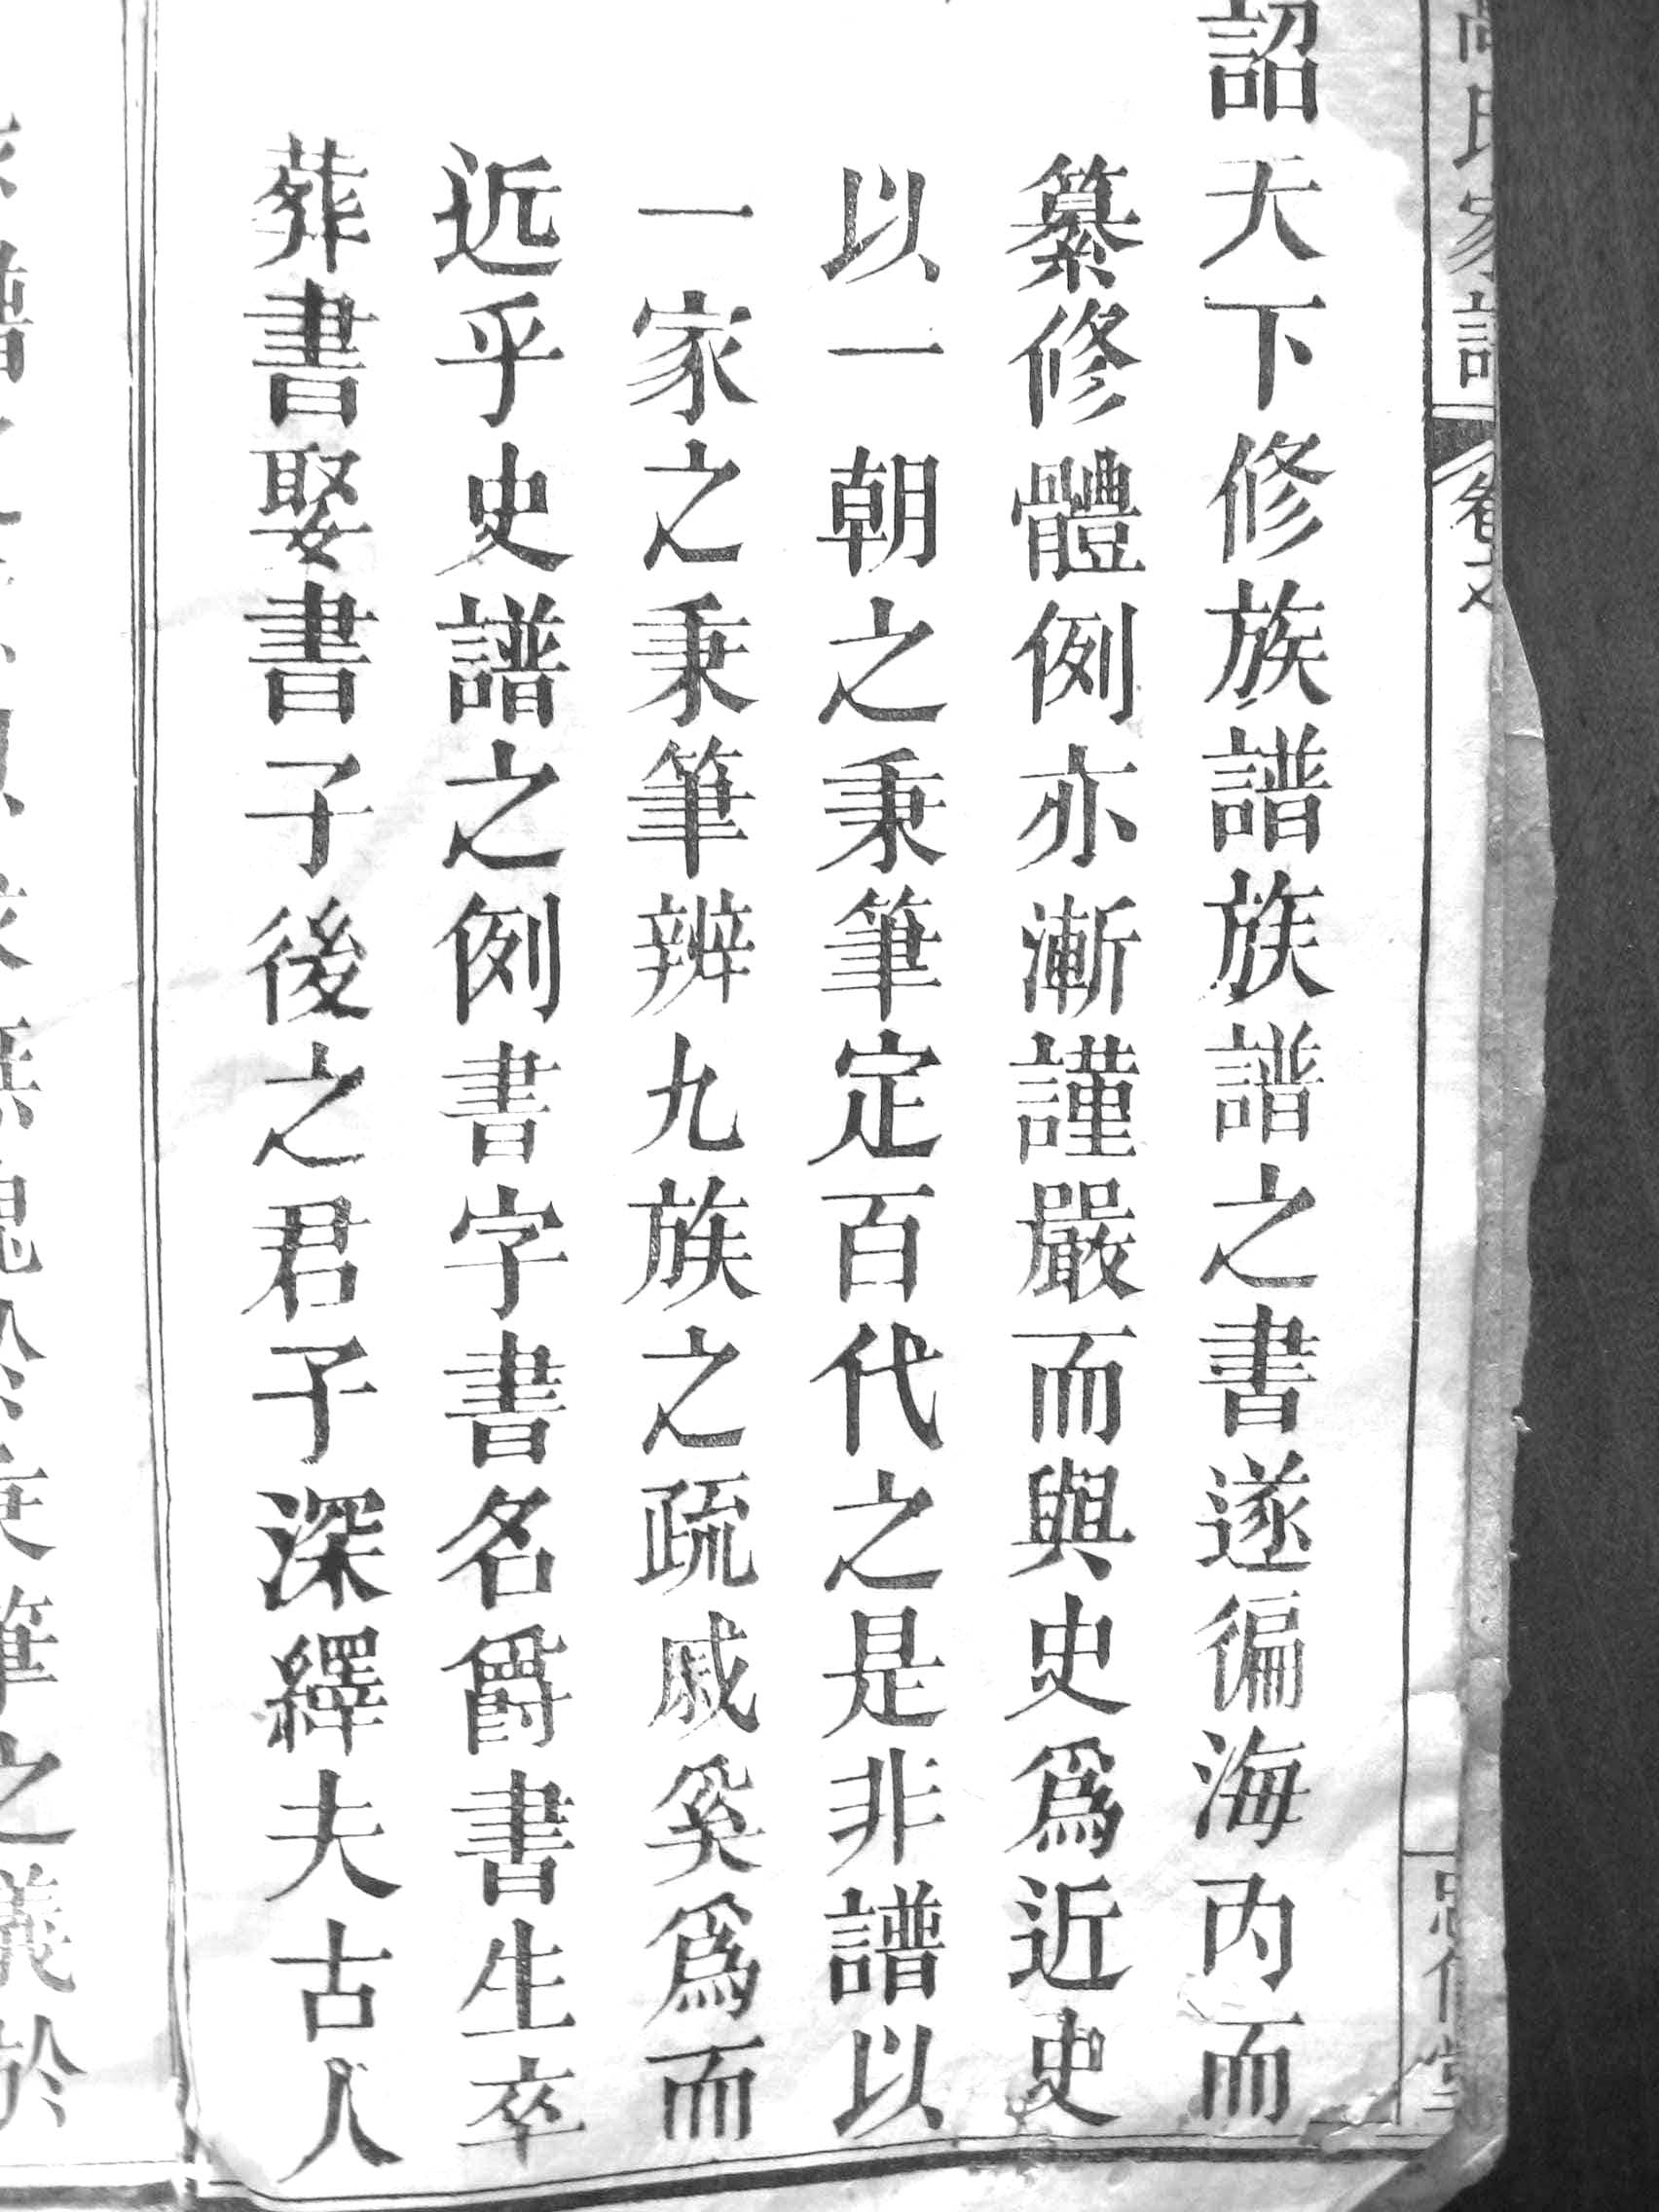 詔天下修族譜族譜之書遂徧海內而
纂修體例亦漸謹嚴而與史爲近史
以一朝之秉筆定百代之是非譜以
一家之秉筆辨九族之疏戚奚爲而
近乎史譜之例書字書名爵書生卒
葬書娶書子後之君子深繹夫古人